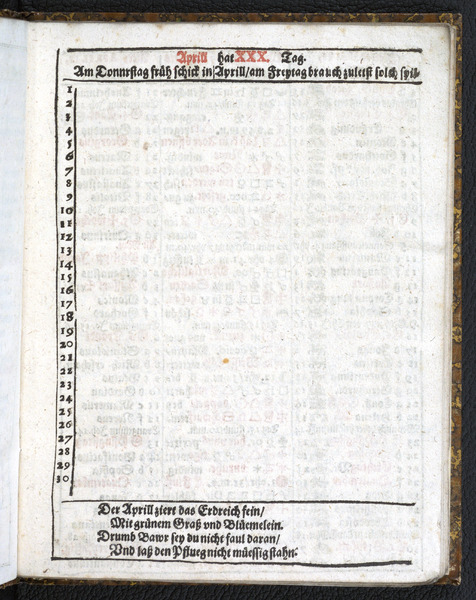 Aprill hat XXX. Tag.
Am Donnrstag früh schick in Aprill/am Freytag brauch zuletst solch spil.
1
2
3
4
5
6
7
8
9
10
11
12
13
14
15
16
17
18
19
20
21
22
23
24
25
26
27
28
29
30
Der Aprill ziert das Erdreich fein/
Mit grünem Graß vnd Blüemelein.
Drumb Bawr sey du nicht faul daran/
Vnd laß den Pflueg nicht müessig stahn.